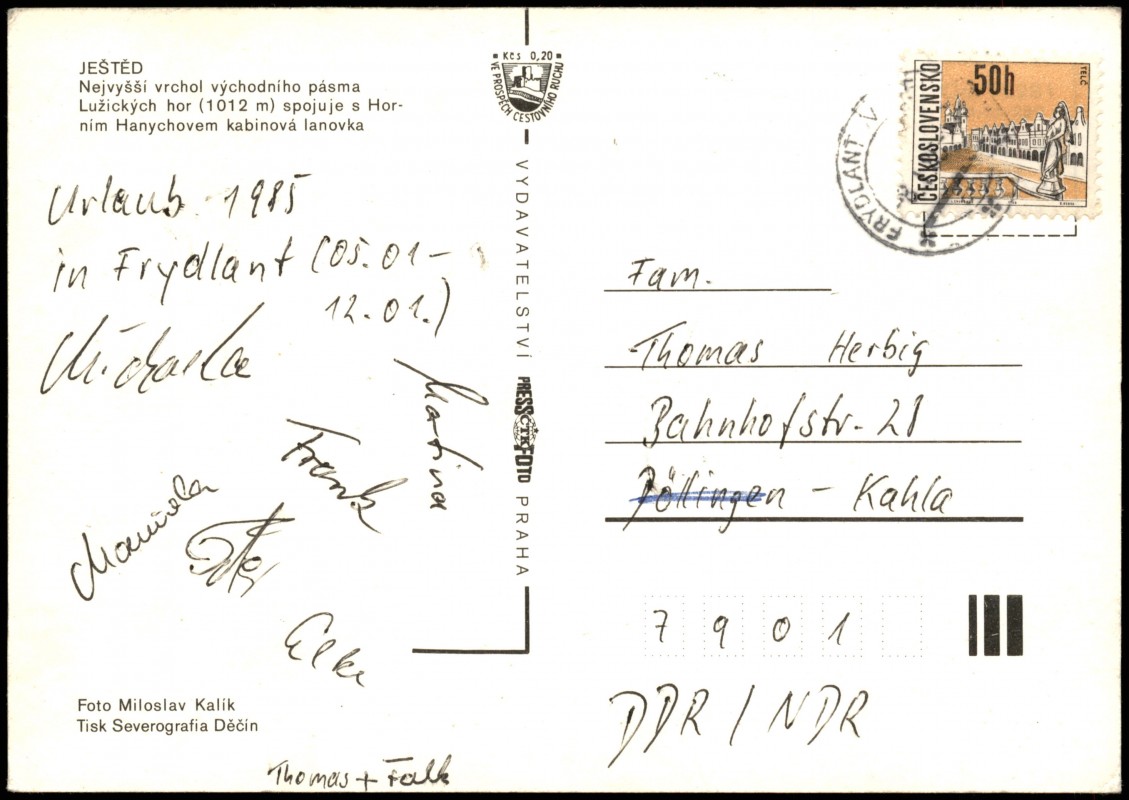 JEŠTĚD
Nejvyšší vrchol východního pásma
Lužických hor (1012 m) spojuje s Hor-
ním Hanychovem kabinová lanovka
Urlaub 1985
in Frydlant (05.01-
12.01.)
Michaela
Martina
Frank
Manuela
Elke
Foto Miloslav Kalík
Tisk Severografia Děčín
Thomas + Falk
Kčs 0,20
VE PROSPĚCH CESTOVNÍHO RUCHU
VYDAVATELSTVÍ PRESSFOTO PRAHA
ČTK
ČESKOSLOVENSKO
50h
TELČ
FRÝDLANT V
Fam.
Thomas Herbig
Bahnhofstr. 28
Döllingen - Kahla
7901
DDR / NDR